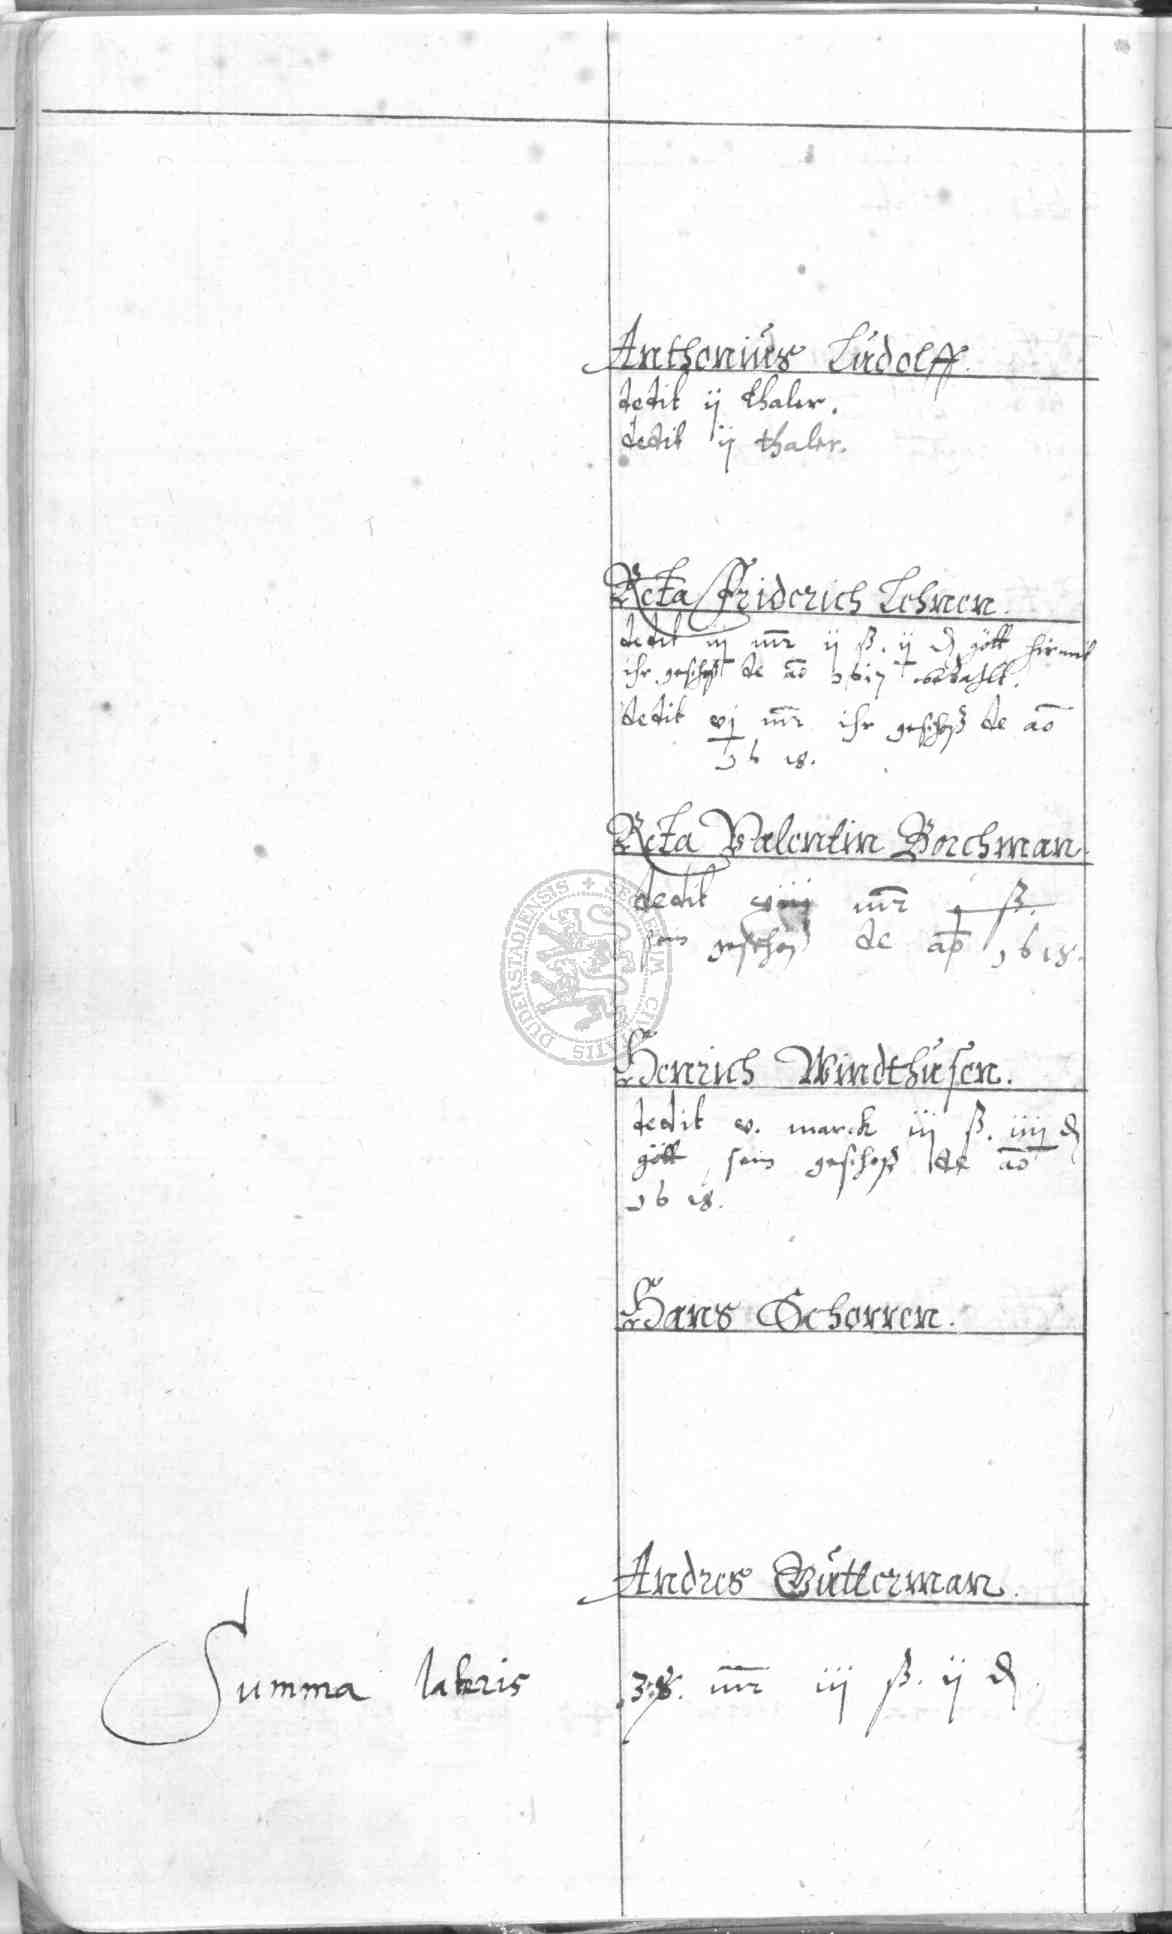 Anthonius Ludolff.
dedit ij thaler.
dedit ij thaler.
Relta Friderich Lehnen.
dedit iij mr ij ß. ij d gött hirmit
ihr geschoß de ao 1617 bezahlt.
dedit vj mr ihr geschoß de ao
1618.
Relta Valentin Borchman.
dedit viiij mr ß.
sein geschoß de ao 1618.
Henrich Windthusen.
dedit v. marck iij ß. iiij d
gött sein geschoß de ao
1618.
Hans Schorren.
Andres Gütterman.
Summa lateris 38. mr iij ß. ij d.
SECRETUM CIVITATIS DUDERSTADIENSIS